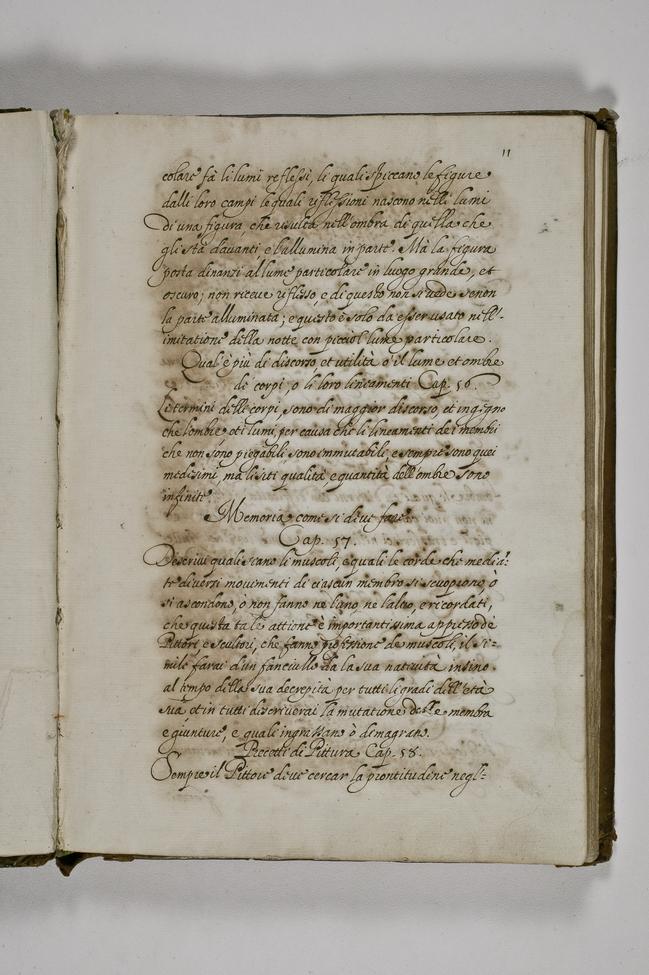 11
colare fà li lumi reflessi, li quali spiccano le figure
dalli loro campi le quali riflessioni nascono nelli lumi
di una figura, che risulta nell'ombra di quella che
gli stà davanti e l'allumina in parte. Mà la figura
posta dinanzi al lume particolare in luogo grande, et
oscuro; non riceve riflesso, e di questo non si vede senon
la parte alluminata; e questo è solo da esser usato nell'-
imitatione della notte con picciol lume particolare.
Qual'è più di discorso, et utilità o' il lume et ombre
de corpi, o li loro lineamenti Cap. 56.
Li termini delli corpi, sono di maggior discorso, et ingegno
che l'ombre, et i lumi, per causa che li lineamenti de i membri
che non sono piegabili, sono immutabili, e sempre sono quei
medesimi, ma li siti qualità e quantità dell'ombre sono
infinite.
Memoria come si deve fare
Cap. 57.
Descrivi quali siano li muscoli, e quali le corde che media:
te diversi movimenti di ciascun membro si scuoprono, ò
si ascondono, o non fanno ne l'uno, ne l'altro, e ricordati,
che questa tale attione è importantissima appresso de
Pittori e scultori, che fanno professione de muscoli, il si=
mile farai d'un fanciullo da la sua natività insino
al tempo della sua decrepità per tutti li gradi dell'età
sua et in tutti discriverai la mutatione delle membra
e giunture, e quali ingrassano ò dimagrano.
Precetti di Pittura Cap. 58.
Sempre il Pittore deve cercar la prontitudine negl'=